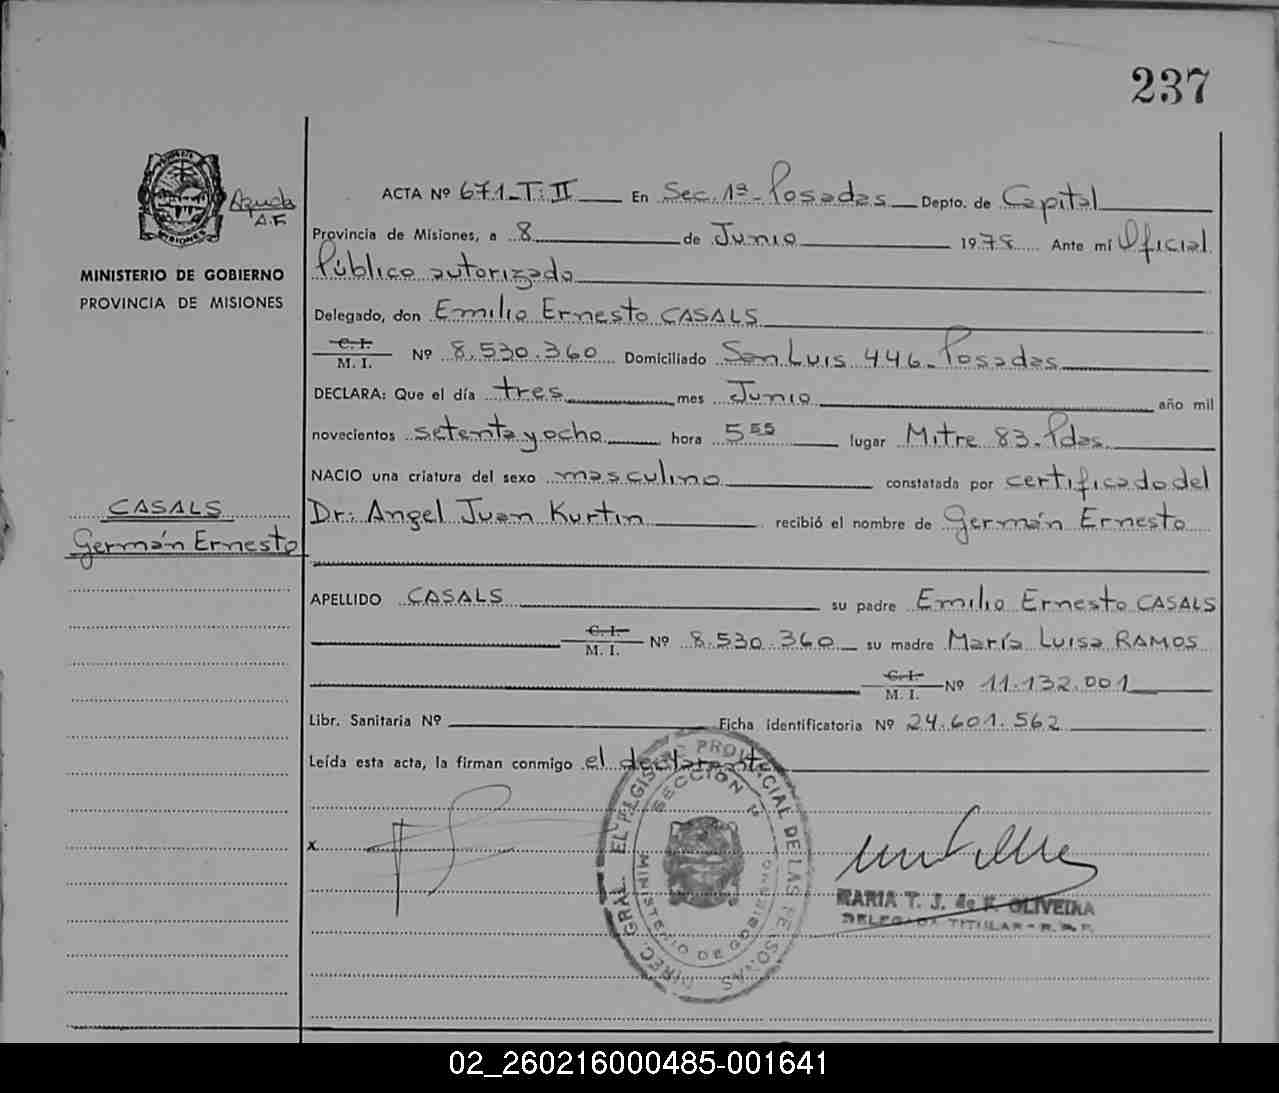 237
ACTA Nº 671-T:II En Sec. 1ª- Posadas Depto. de Capital
A.F.
Provincia de Misiones, a 8 de Junio 1978 Ante mí Oficial
MINISTERIO DE GOBIERNO
PROVINCIA DE MISIONES
Público autorizado
Delegado, don Emilio Ernesto CASALS
C. I.
M. I. Nº 8.530.360 Domiciliado San Luis 446- Posadas
DECLARA: Que el día tres mes Junio año mil
novecientos setenta y ocho hora 5 55 lugar Mitre 83-Pdas.
NACIO una criatura del sexo masculino constatada por certificado del
CASALS
Germán Ernesto
Dr: Angel Juan Kurtin recibió el nombre de Germán Ernesto
APELLIDO CASALS su padre Emilio Ernesto CASALS
C. I.
M. I. Nº 8.530.360 su madre María Luisa RAMOS
C. I.
M. I. Nº 11.132.001
Libr. Sanitaria Nº Ficha identificatoria Nº 24.601.562
Leída esta acta, la firman conmigo el declarante
x
DIREC. GRAL. EL REGISTRO PROVINCIAL DE LAS PERSONAS
SECCION 1ª
MINISTERIO DE GOBIERNO
MARIA T. J. de F. OLIVEIRA
DELEGADA TITULAR - R. P. P.
02_260216000485-001641